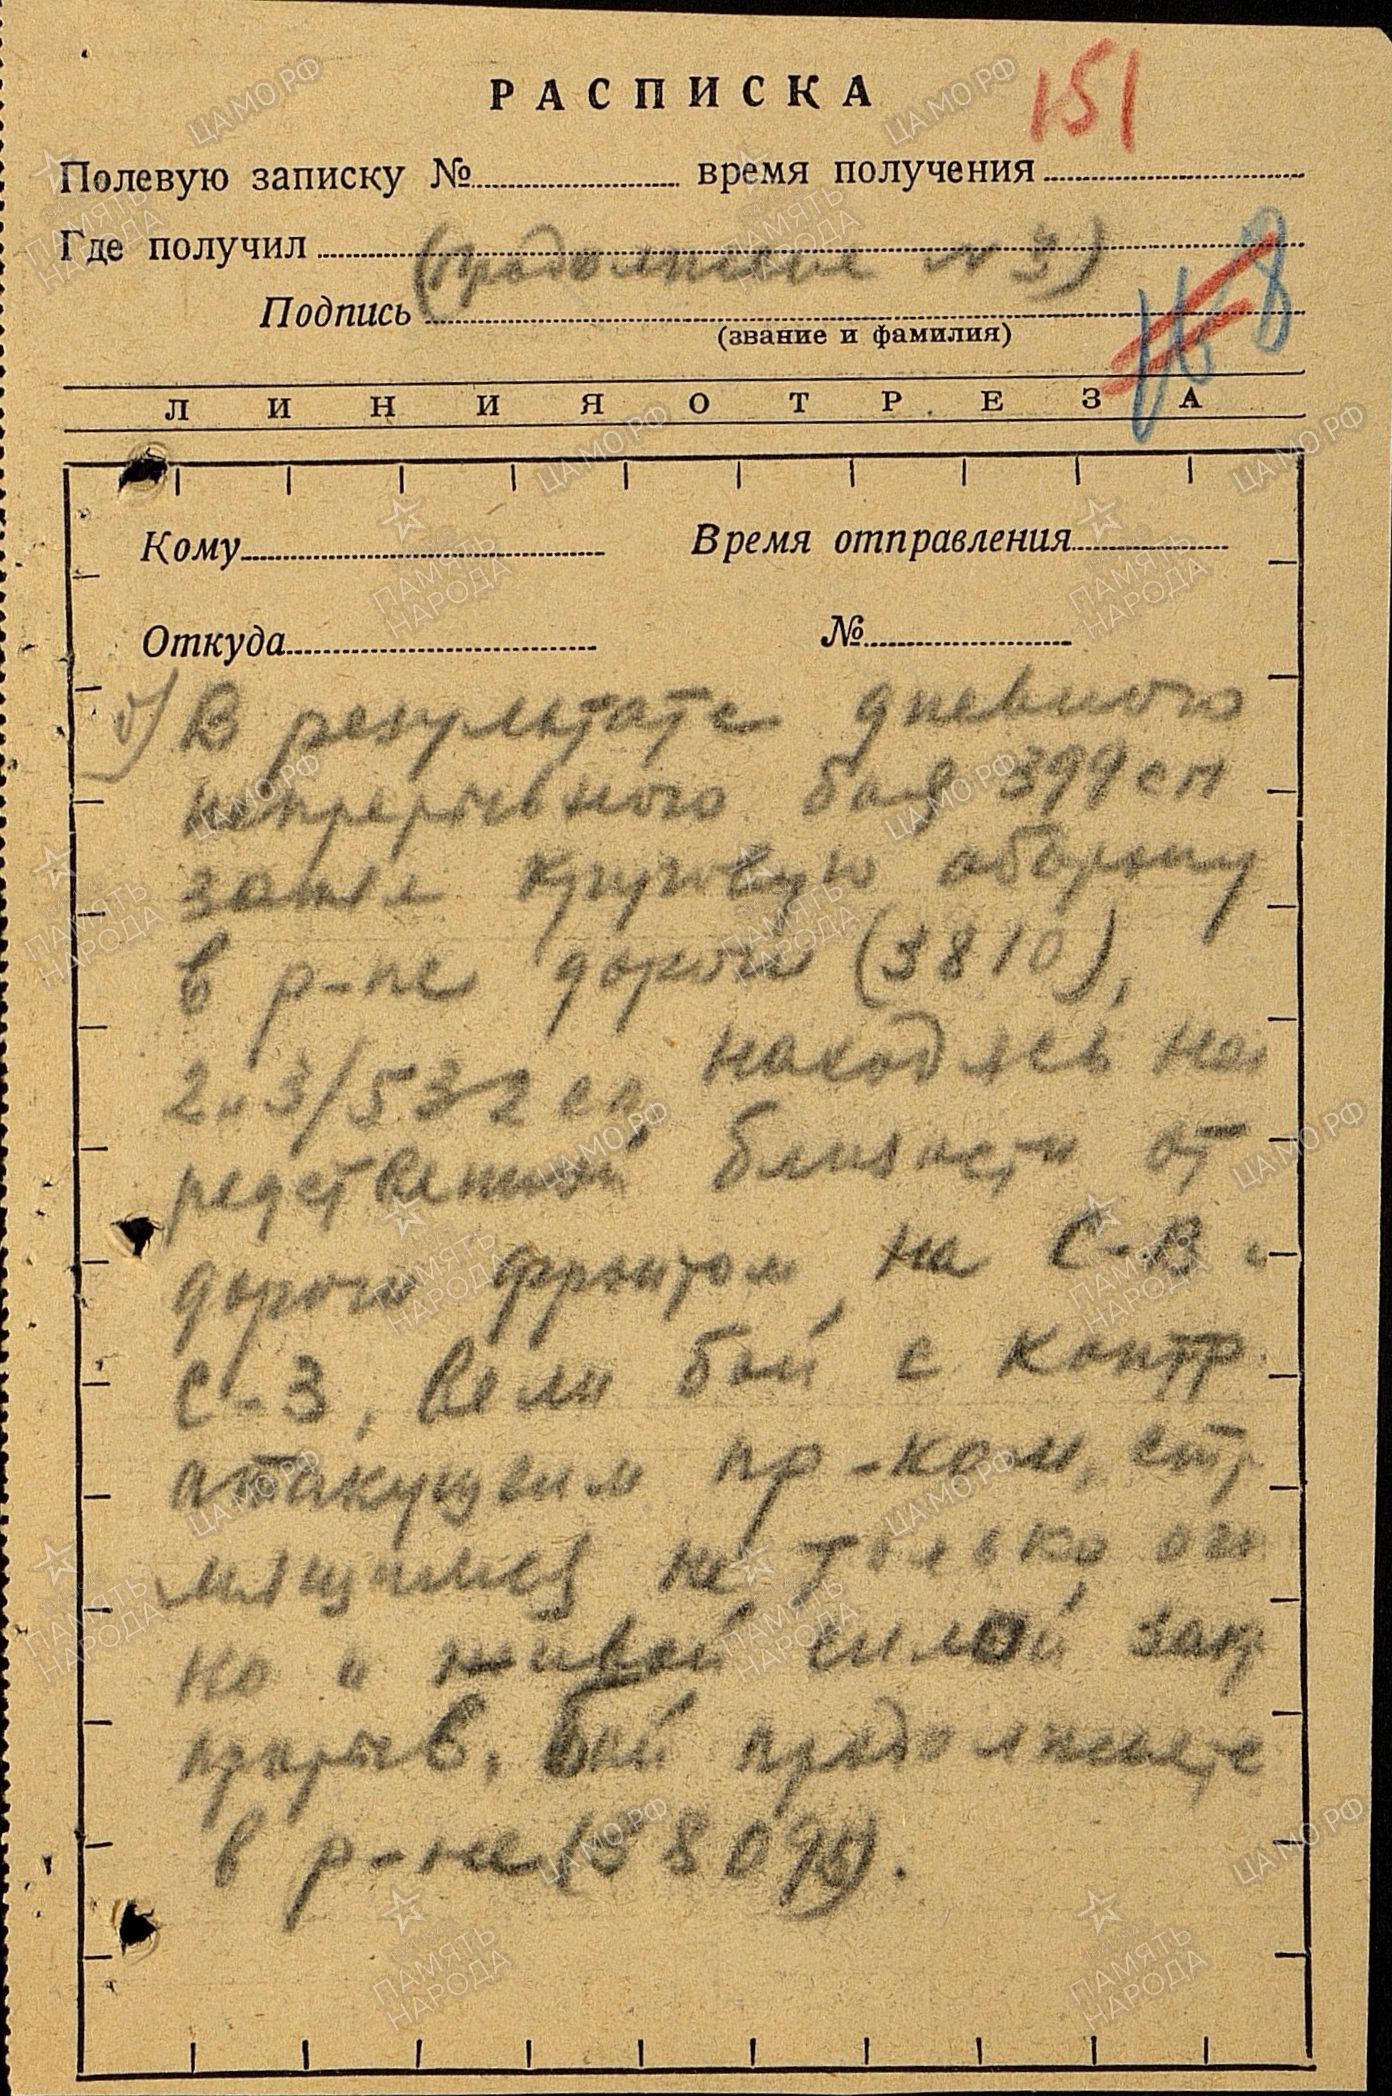 РАСПИСКА
151
Полевую записку № время получения
Где получил
(продолжение № 3)
Подпись
(звание и фамилия)
ЛИНИЯ ОТРЕЗА
Кому Время отправления
Откуда №
В результате дневного
непрерывного боя 399 сп
занял круговую оборону
в р-не дороги (3810),
2 и 3/532 сп, находясь не
редственной близости от
дороги фронтом на С-В и
С-З, вели бой с контр
атакующим пр-ком, стр
мящимся не только ог
но и живой силой зак
прорыв. Бой продолжаетс
в р-не (3809).
ЦАМО.РФ
ПАМЯТЬ
НАРОДА